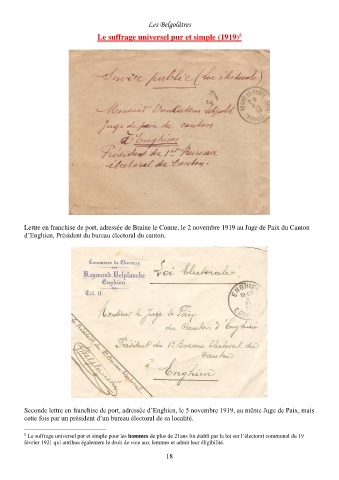 Les Belgolâtres
Le suffrage universel pur et simple (1919)⁵
Service public (Loi électorale)
Monsieur Léopold
Juge de paix de canton
à Enghien
Président du 1er Bureau
électoral du Canton.
Lettre en franchise de port, adressée de Braine le Comte, le 2 novembre 1919 au Juge de Paix du Canton
d'Enghien, Président du bureau électoral du canton.
Raymond Delplanche
Enghien
Tél. 11
Loi Electorale
ENGHIEN
Monsieur le Juge de Paix
du Canton d'Enghien
Président du 1er Bureau Electoral du
Canton
Enghien
Le Président du Bureau Electoral
Seconde lettre en franchise de port, adressée d'Enghien, le 5 novembre 1919, au même Juge de Paix, mais
cette fois par un président d'un bureau électoral de sa localité.
⁵ Le suffrage universel pur et simple pour les hommes de plus de 21ans fut établi par la loi sur l'électorat communal du 19
février 1921 qui attribua également le droit de vote aux femmes et admit leur éligibilité.
18